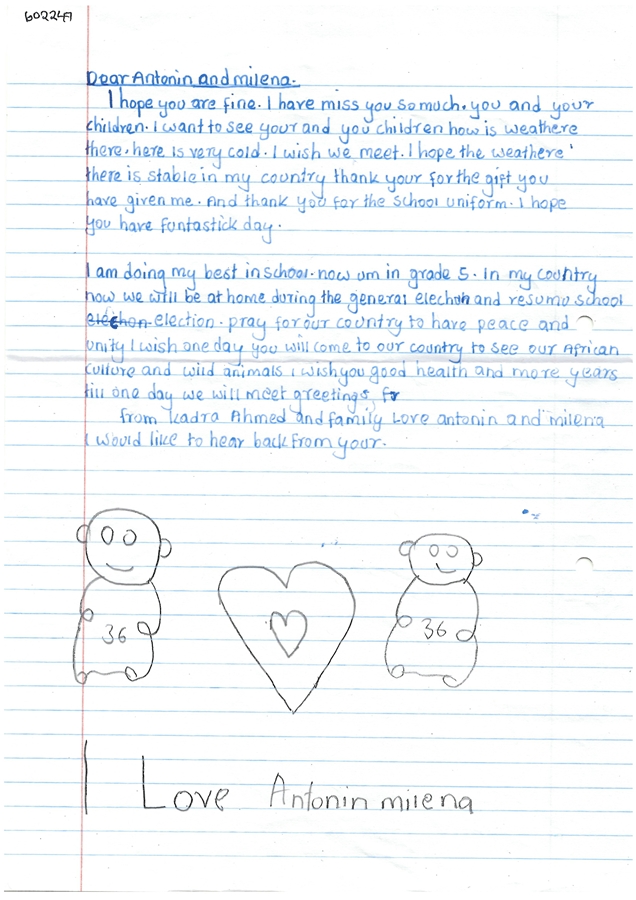 602247
Dear Antonin and milena.
I hope you are fine. I have miss you so much. you and your
children. I want to see your and you children how is weathere
there. here is very cold. I wish we meet. I hope the weathere
there is stable in my country thank your for the gift you
have given me. And thank you for the school uniform. I hope
you have funtastick day.
I am doing my best in school. now um in grade 5. in my country
now we will be at home during the general elechon and resumo school
elechon election. pray for our country to have peace and
unity I wish one day you will come to our country to see our African
culture and wild animals I wish you good health and more years
till one day we will meet greetings, for
from Kadra Ahmed and family Love antonin and milena
I would like to hear back from your.
36
36
I Love Antonin milena